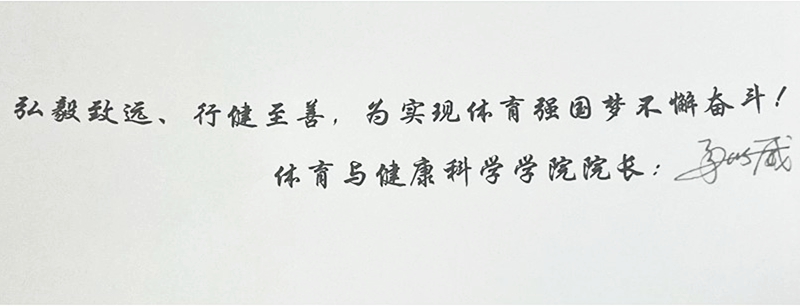 弘毅致远、行健至善,为实现体育强国梦不懈奋斗!
体育与健康科学学院院长: